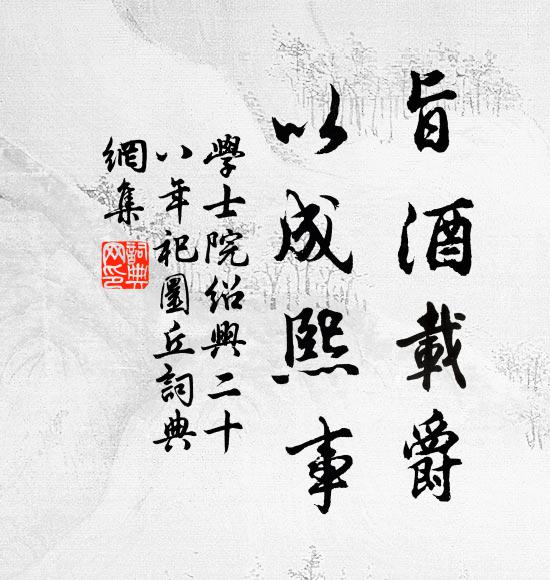 旨酒載爵
以成熙事
學士院紹興二十
八年祀圜丘詞典
網集
詞典
網印